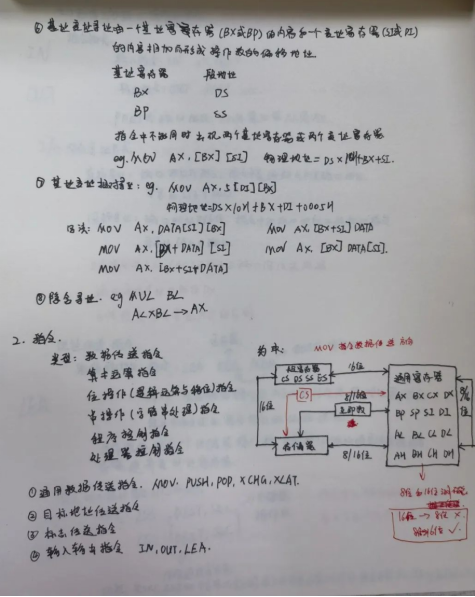 ⑥ 基址变址寻址由一个基址寄存器(BX或BP)的内容和一个变址寄存器(SI或DI)
的内容相加而形成操作数的偏移地址.
基址寄存器 段地址
BX DS
BP SS
指令中不能同时出现两个基址寄存器或两个变址寄存器
eg. MOV AX, [BX] [SI] 物理地址= DS×10H+BX+SI.
⑦ 基址变址相对寻址: eg. MOV AX, 5[DI][BX]
物理地址=DS×10H+BX+DI+0005H
MOV AX, DATA[SI][BX] MOV AX, [BX+SI] DATA
MOV AX, [BX+DATA] [SI] MOV AX, [BX] DATA[SI].
MOV AX, [BX+SI+DATA]
⑧ 隐含寻址. eg MUL BL
AL×BL→AX.
2. 指令.
类型: 数据传送指令
算术运算指令
位操作(逻辑运算与移位)指令
串操作(字符串处理)指令
程序控制指令
处理器控制指令
① 通用数据传送指令. MOV, PUSH, POP, XCHG, XLAT.
② 目标地址传送指令
③ 标志传送指令
④ 输入输出指令 IN, OUT, LEA.
MOV 指令数据传送方向
段寄存器
CS DS SS ES
16位
CS
16位
8/16位
立即数
存储器
8/16位
通用寄存器
AX BX CX DX
BP SP SI DI
AL BL CL DL
AH BH CH DH
16位 → 8位 ×
8位→16位 ✓